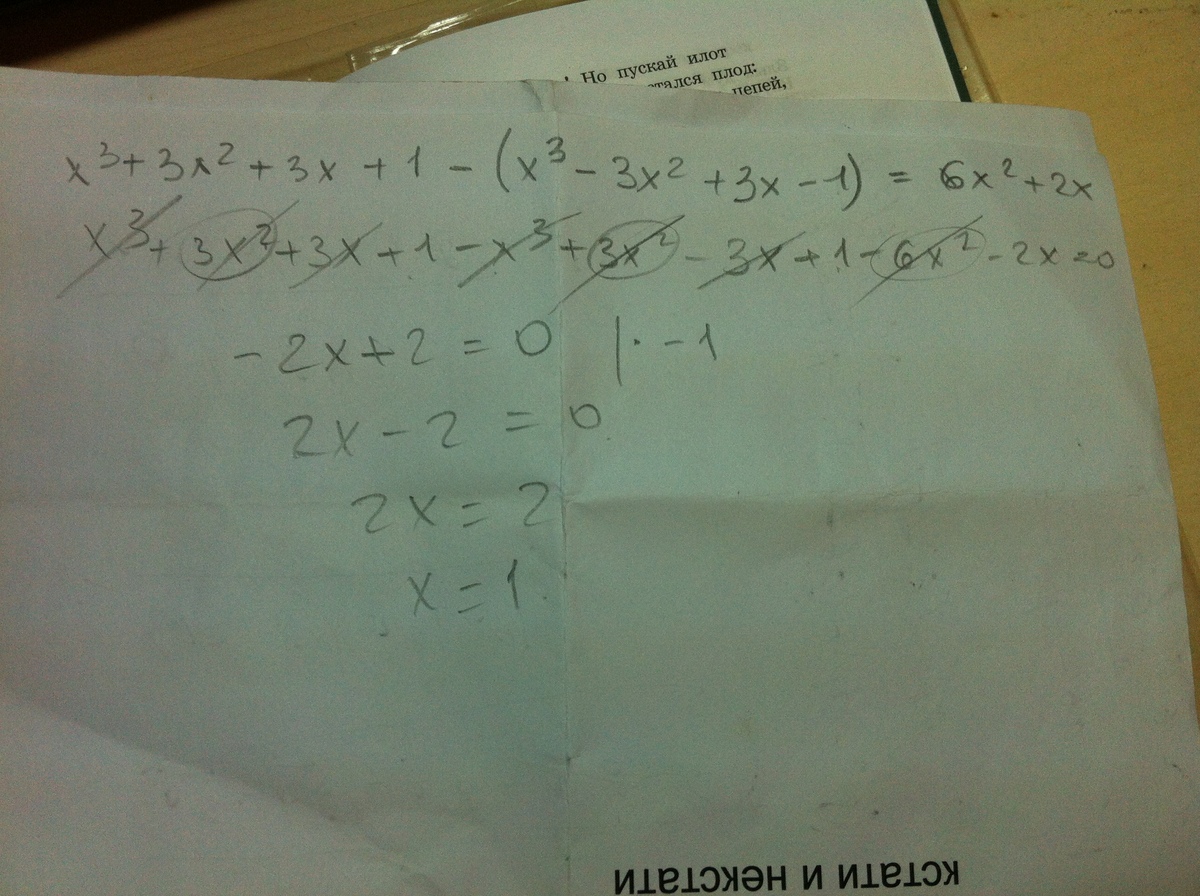 ! Но пускай илот
стался плод:
цепей,
x³ + 3x² + 3x + 1 - (x³ - 3x² + 3x - 1) = 6x² + 2x
x³ + 3x² + 3x + 1 - x³ + 3x² - 3x + 1 - 6x² - 2x = 0
- 2x + 2 = 0 | · - 1
2x - 2 = 0
2x = 2
x = 1
кстати и некстати